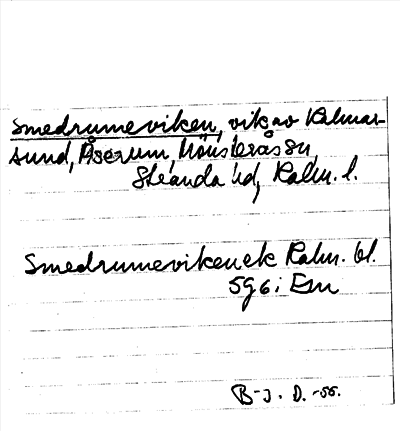 Smedrumeviken, vik av Kalmar-
sund, Åserum, Mönsterås sn,
Stranda hd, Kalm. l.
Smedrumeviken ek Kalm. bl.
5g 6i Esn
B-J. D. -55.